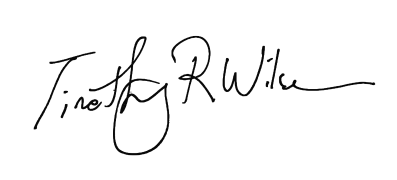 Timothy R Wilson